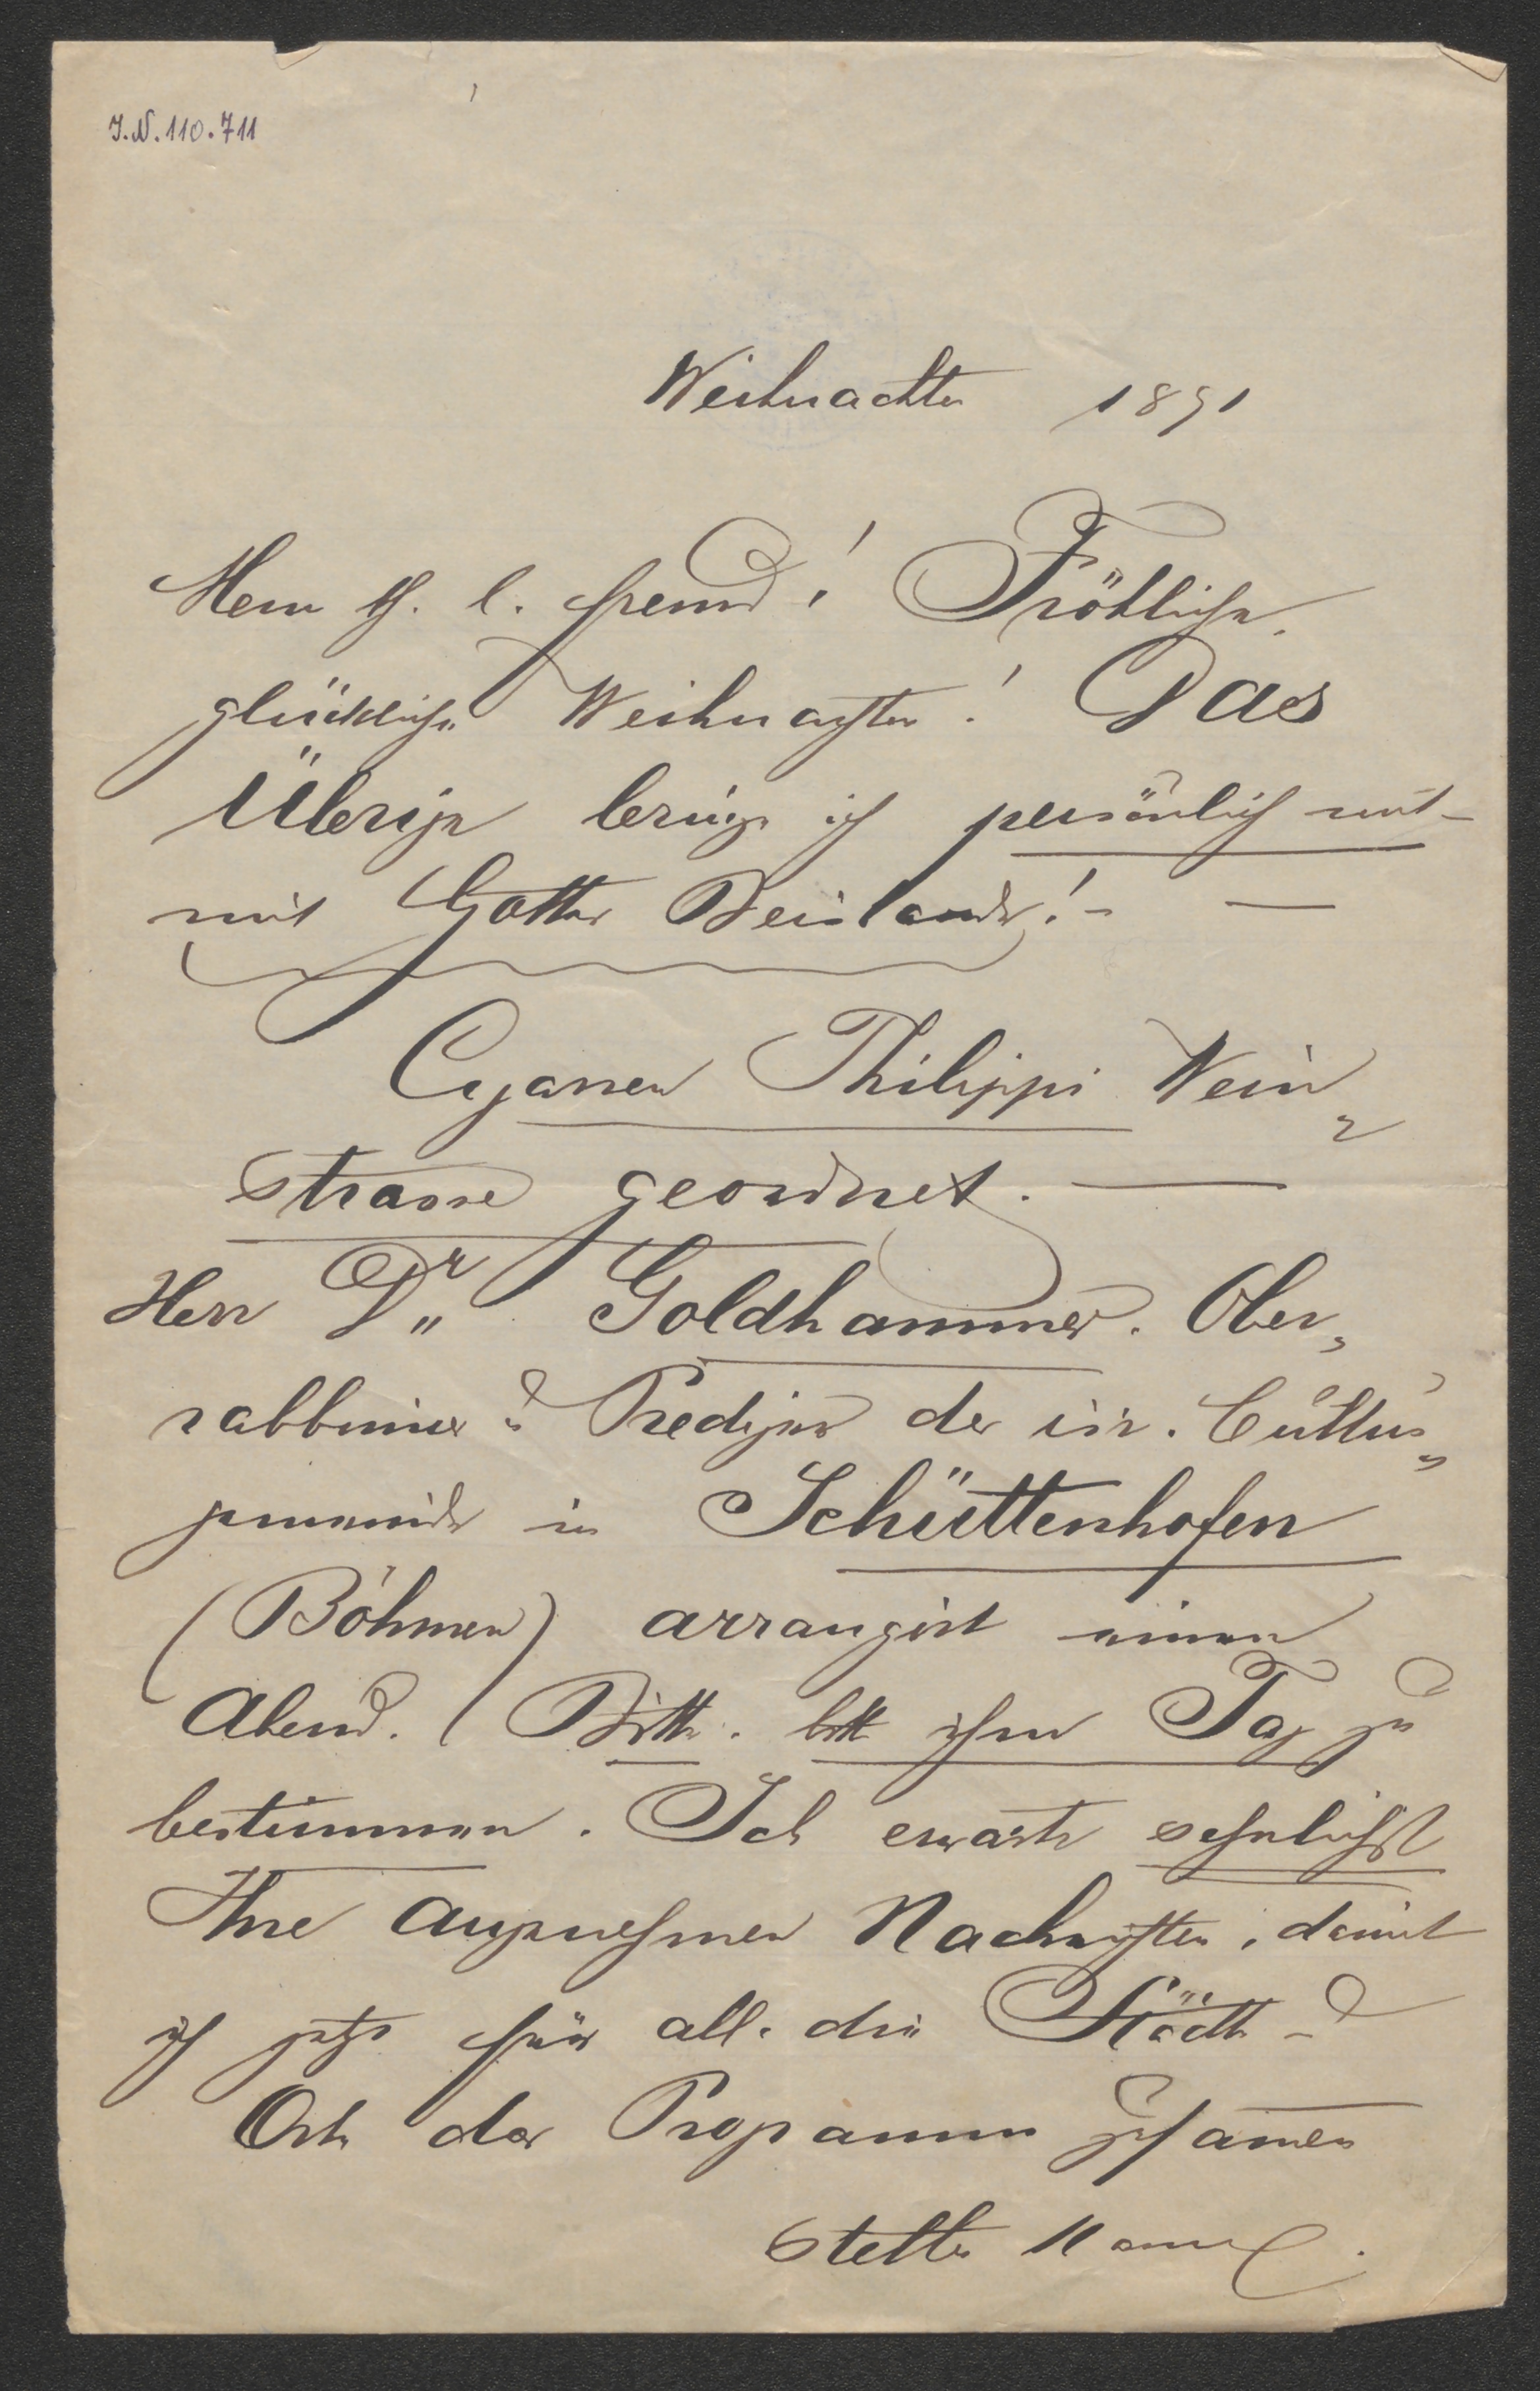 I.N. 110.711
Weihnachten 1891
Mein th. l. Freund! Fröhliche,
glückliche Weihnachten! Das
Übrige bringe ich persönlich mit –
mit Gottes Beistande! – —
Cyanen Philippi Wein„
strasse geordnet. —
Herr Dr. Goldhammer. Ober„
rabbiner u. Prediger der isr. Cultus„
gemeinde in Schüttenhofen
(Böhmen) arrangirt einen
Abend. (Bitte. bitte ihm Tag zu
bestimmen. Ich erwarte sehnlichst
Ihre angenehmen Nachrichten, damit
ich jetzt für alle die Städte u
Orte das Programm zusammen
stellen kann.